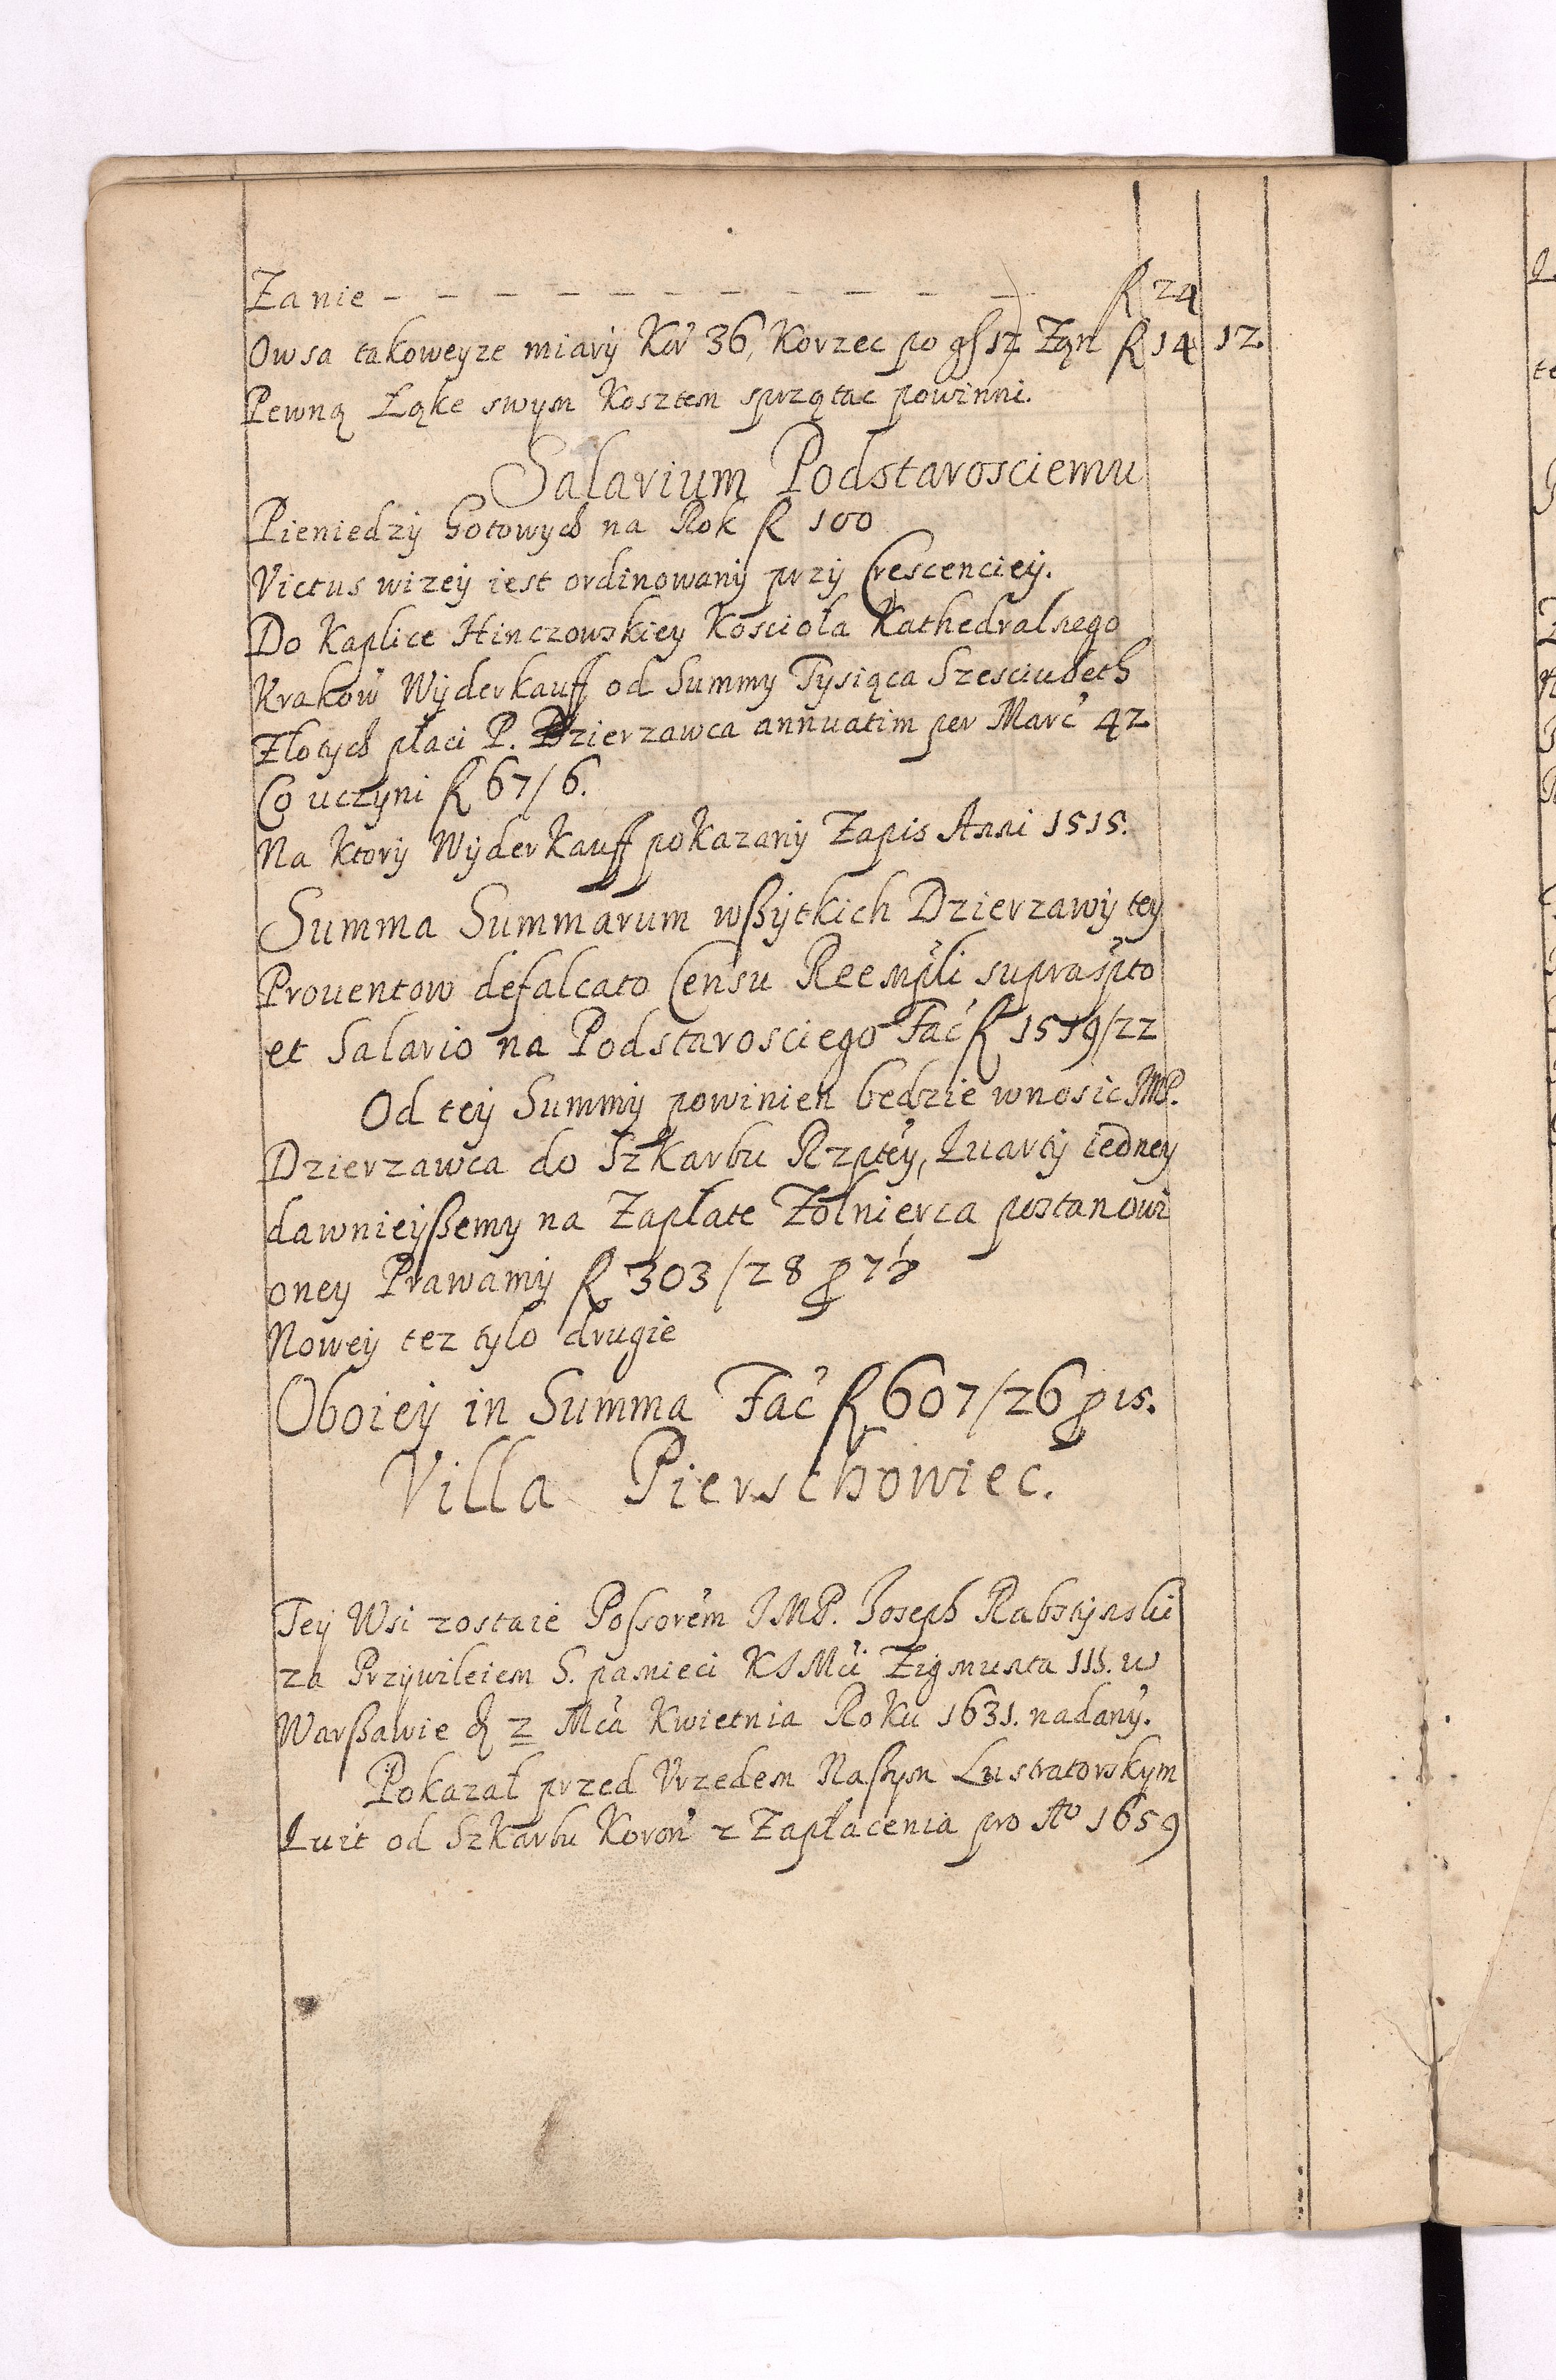 Za nie - - - - - - - - - - - - f 24
Owsa takoweyze miary Kor 36, Korzec po gs 12 Zan f 14 12.
Pewną Łąke swym Kosztem sprzątac powinni.
Salarium Podstarosciemu
Pieniedzy Gotowych na Rok f 100
Victus wizey iest ordinowany przy Crescenciey.
Do Kaplice Hinczowskiey Koscioła Kathedralnego
Krakow Wyderkauff od Summy Tysiąca Szesciudeth
Złotych płaci P. Dzierzawca annuatim per Marc 42
Co uczyni f 67/6.
Na ktory Wyderkauff pokazany Zapis Anni 1515.
Summa Summarum wßytkich Dzierzawy tey
Prouentow defalcato Censu Reempli suprascpto
et Salario na Podstarosciego Fac f 1519/22
Od tey Summy powinien bedzie wnosic JMP.
Dzierzawca do Szkarbu Rzptey, Quarty iedney
dawnieyßemy na Zapłate Zołnierza postanowi
oney Prawamy f 303/28 p 7½
Nowey tez tylo drugie
Oboiey in Summa Fac f 607/26 p 15.
Villa Pierschowiec.
Tey Wsi zostaie Possorem JMP. Joseph Rabstynski
za Przywileiem S. pamieci KJMci Zigmunta III. w
Warßawie d 2 Mca Kwietnia Roku 1631. nadany.
Pokazał przed Vrzedem Naßym Lustratorskym
Quit od Szkarbu Koron z Zapłacenia pro Ao 1659